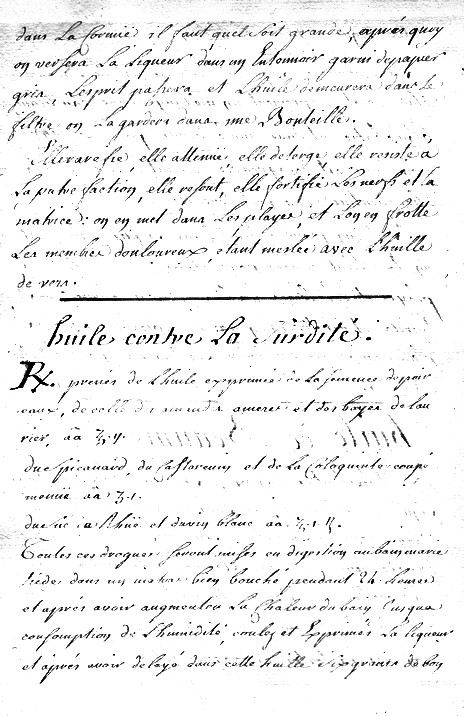 dans La Cornuë il faut quel soit grande, aprés quoy
on versera La Liqueur dans un Entonnoir garni de papier
gris, Lesprit passera et L'huile demeurera dans le
filtre on La gardera dans une Bouteille.
Elle rarefie, elle attenuë, elle deterge, elle resiste à
La putrefaction, elle resout, elle fortifie Les nerfs et La
matrice: on en met dans Les playes, et Lon en frotte
Les membres douloureux, etant meslée avec L'huille
de vers.
huile contre La Surdité.
Rx. prenés de L'huile exprimée de La semence de poir
eaux, de celle des amandes ameres et des bayes de Lau
rier, aā ℥. ij.
du Castoreum et de La Coloquinte coupé
menuë aā ʒ. 1.
du suc de Rhüe et du vin blanc aā
Toutes ces drogues seront mises en digestion au bain marie
tiede dans un matras bien bouché pendant 24 heures
et aprés avoir augmenté La Chaleur du bain Jusqua
consomption de L'humidité, coulez et Exprimés La liqueur
et aprés avoir delayé dans cette huille six grains de bon